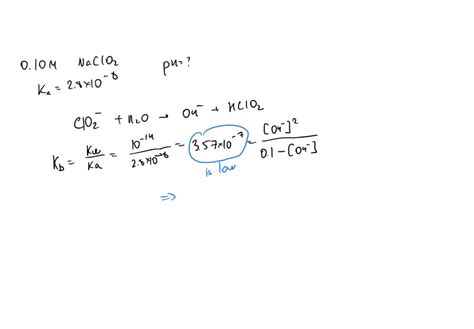 0.10M NaClO₂ pH=?
Ka = 2.8×10⁻⁸
ClO₂⁻ + H₂O → OH⁻ + HClO₂
Kb = Kw/Ka = 10⁻¹⁴/2.8×10⁻⁸ = 3.57×10⁻⁷ = [OH⁻]²/0.1-[OH⁻]
is low
⇒